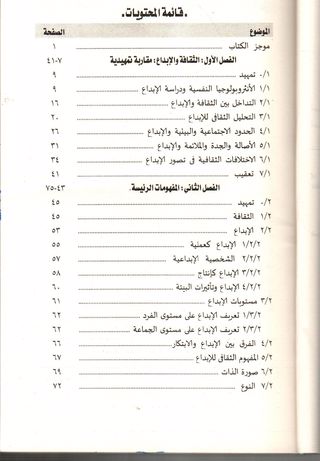 قائمة المحتويات
الموضوع الصفحة
موجز الكتاب ١
الفصل الأول: الثقافة والإبداع: مقاربة تمهيدية ٧-٤١
٠/١ تمهيد ٩
١/١ الأنثروبولوجيا النفسية ودراسة الإبداع ٩
٢/١ التداخل بين الثقافة والإبداع ١٦
٣/١ التحليل الثقافى للإبداع ٢٠
٤/١ الحدود الاجتماعية والبيئية والإبداع ٢٦
٥/١ الأصالة والجدة والملائمة والإبداع ٣١
٦/١ الاختلافات الثقافية فى تصور الإبداع ٣٤
٧/١ تعقيب ٤١
الفصل الثانى: المفهومات الرئيسة ٤٣-٧٥
٠/٢ تمهيد ٤٥
١/٢ الثقافة ٤٥
٢/٢ الإبداع ٥٣
١/٢/٢ الإبداع كعملية ٥٥
٢/٢/٢ الشخصية الإبداعية ٥٧
٣/٢/٢ الإبداع كإنتاج ٥٨
٤/٢/٢ الإبداع وتأثيرات البيئة ٦٠
٣/٢ مستويات الإبداع ٦١
١/٣/٢ تعريف الإبداع على مستوى الفرد ٦٢
٢/٣/٢ تعريف الإبداع على مستوى الجماعة ٦٢
٤/٢ الفرق بين الإبداع والابتكار ٦٦
٥/٢ المفهوم الثقافى للإبداع ٦٧
٦/٢ صورة الذات ٦٩
٧/٢ النوع ٧٢